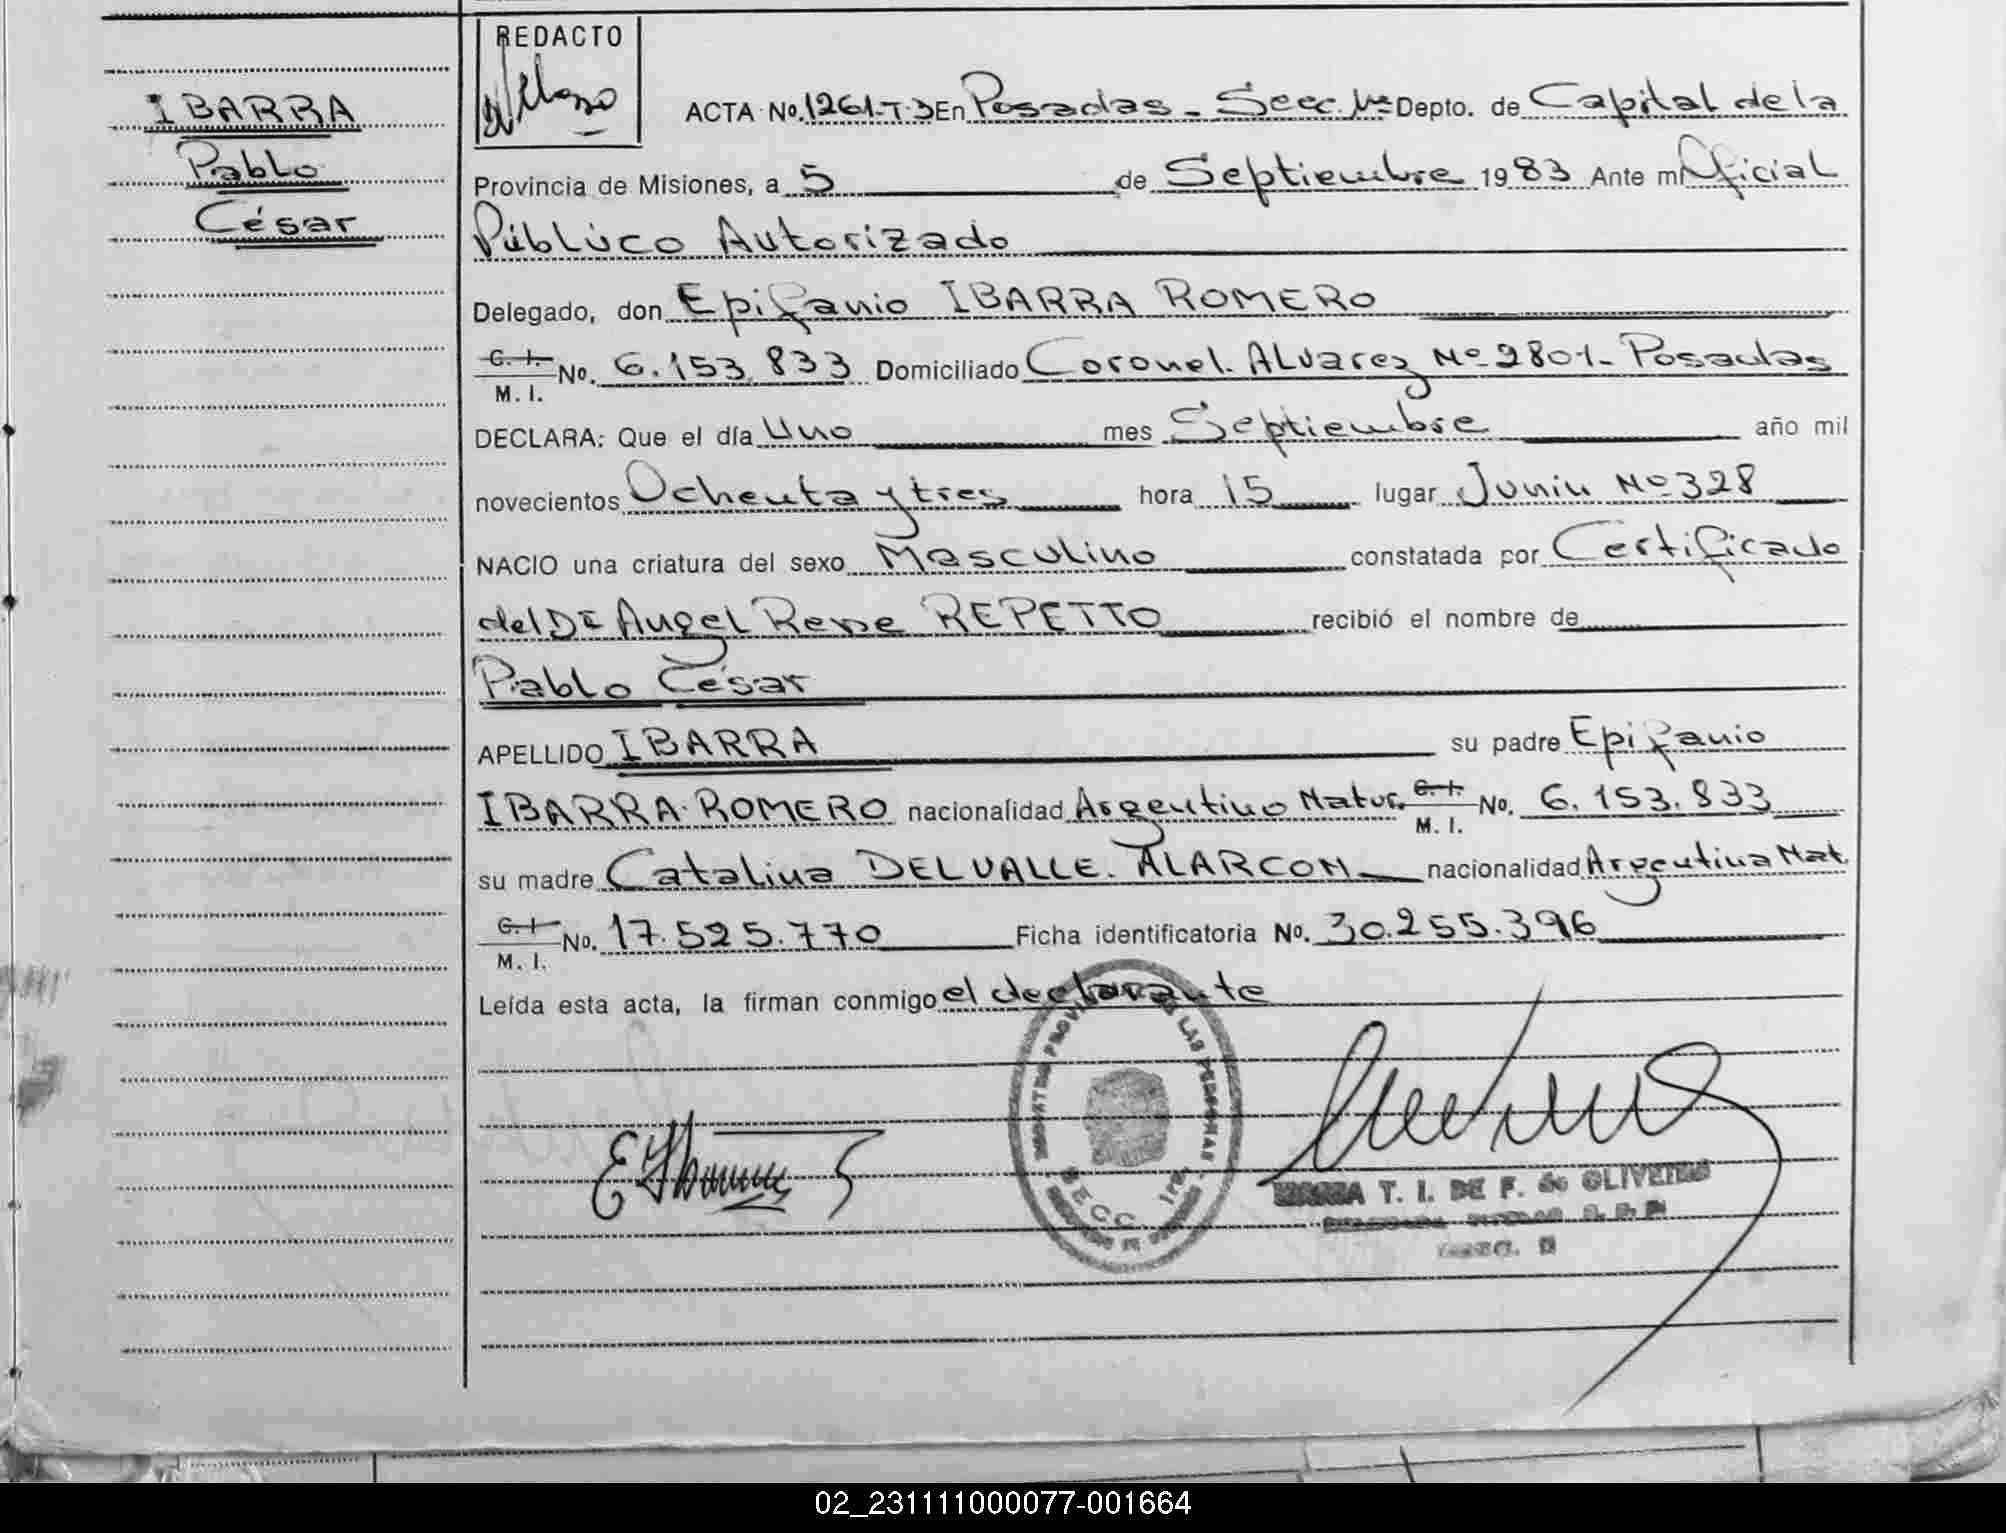 IBARRA
Pablo
César
REDACTO
ACTA No. 1261-T-3 En Posadas - Secc. 1ra Depto. de Capital de la
Provincia de Misiones, a 5 de Septiembre 1983 Ante mí Oficial
Público Autorizado
Delegado, don Epifanio IBARRA ROMERO
C. I.
M. I. No. 6.153.833 Domiciliado Coronel. Alvarez Nº 2801- Posadas
DECLARA: Que el día Uno mes Septiembre año mil
novecientos Ochenta y tres hora 15 lugar Junin Nº 328
NACIO una criatura del sexo Masculino constatada por Certificado
del Dr Angel Rene REPETTO recibió el nombre de
Pablo César
APELLIDO IBARRA su padre Epifanio
IBARRA-ROMERO nacionalidad Argentino Natur. C. I. M. I. No. 6.153.833
su madre Catalina DELVALLE. ALARCON nacionalidad Argentina Nat.
C. I.
M. I. No. 17.525.770 Ficha identificatoria No. 30.255.396
Leída esta acta, la firman conmigo el declarante
LAS PERSONAS
SECC. 1ra
T. I. DE F. de OLIVEIRA
02_231111000077-001664